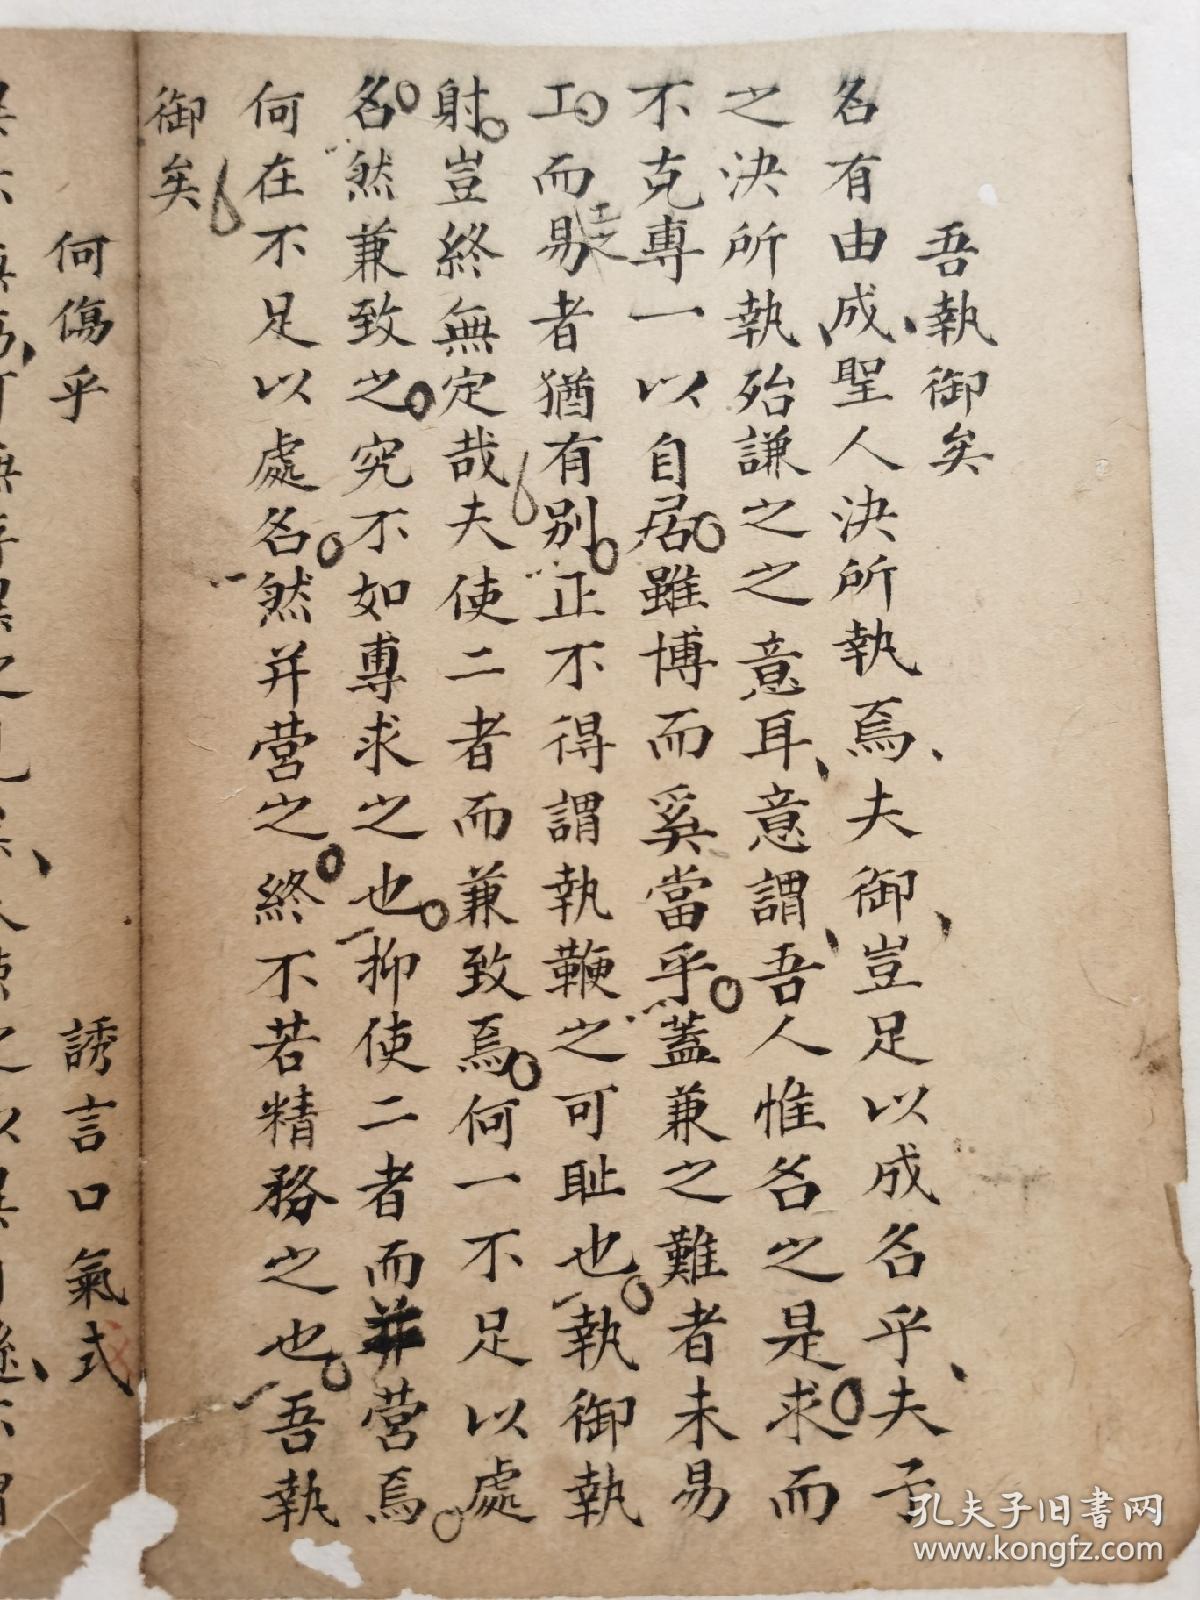 吾執御矣
名有由成聖人決所執焉夫御豈足以成名乎夫子
之決所執殆謙之之意耳意謂吾人惟名之是求而
不克專一以自居雖博而奚當乎蓋兼之難者未易
工而易者猶有別正不得謂執鞭之可恥也執御執
工之
射豈終無定哉夫使二者而兼致焉何一不足以處
名然兼致之究不如專求之也抑使二者而並營焉
何在不足以處名然并營之終不若精務之也吾執
御矣
何傷乎 誘言口氣式
孔夫子旧书网
www.kongfz.com